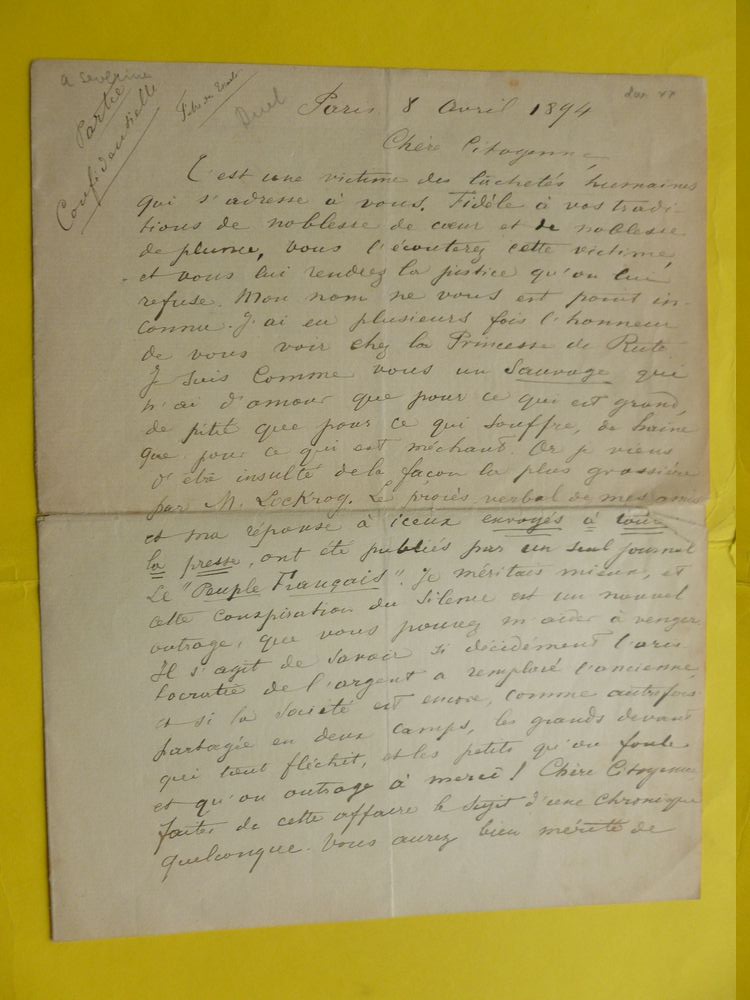 a Severine
Partie
Confidentielle
Duel
Paris 8 Avril 1894
Chère Citoyenne,
C'est une victime des lâchetés humaines
qui s'adresse à vous. Fidèle à vos tradi-
tions de noblesse de cœur et de noblesse
de plume, vous l'écouterez cette victime,
et vous lui rendrez la justice qu'on lui
refuse. Mon nom ne vous est point in-
connu. J'ai eu plusieurs fois l'honneur
de vous voir chez la Princesse de Rute
Je suis comme vous un Sauvage qui
n'ai d'amour que pour ce qui est grand,
de pitié que pour ce qui souffre, de haine
que pour ce qui est méchant. Or je viens
d'être insulté de la façon la plus grossière
par M. Lockroy. Le procés verbal de mes amis
et ma réponse à iceux envoyés à toute
la presse, ont été publiés par un seul journal
Le "Peuple Français". Je méritais mieux, et
cette conspiration du Silence est un nouvel
outrage, que vous pouvez m'aider à venger
Il s'agit de savoir si décidément l'aris-
tocratie de l'argent a remplacé l'ancienne,
et si la Société est encore, comme autrefois
partagée en deux camps, les grands devant
qui tout fléchit, et les petits qu'on foule
et qu'on outrage à merci! Chère Citoyenne
faites de cette affaire le sujet d'une chronique
quelconque. Vous aurez bien mérité de